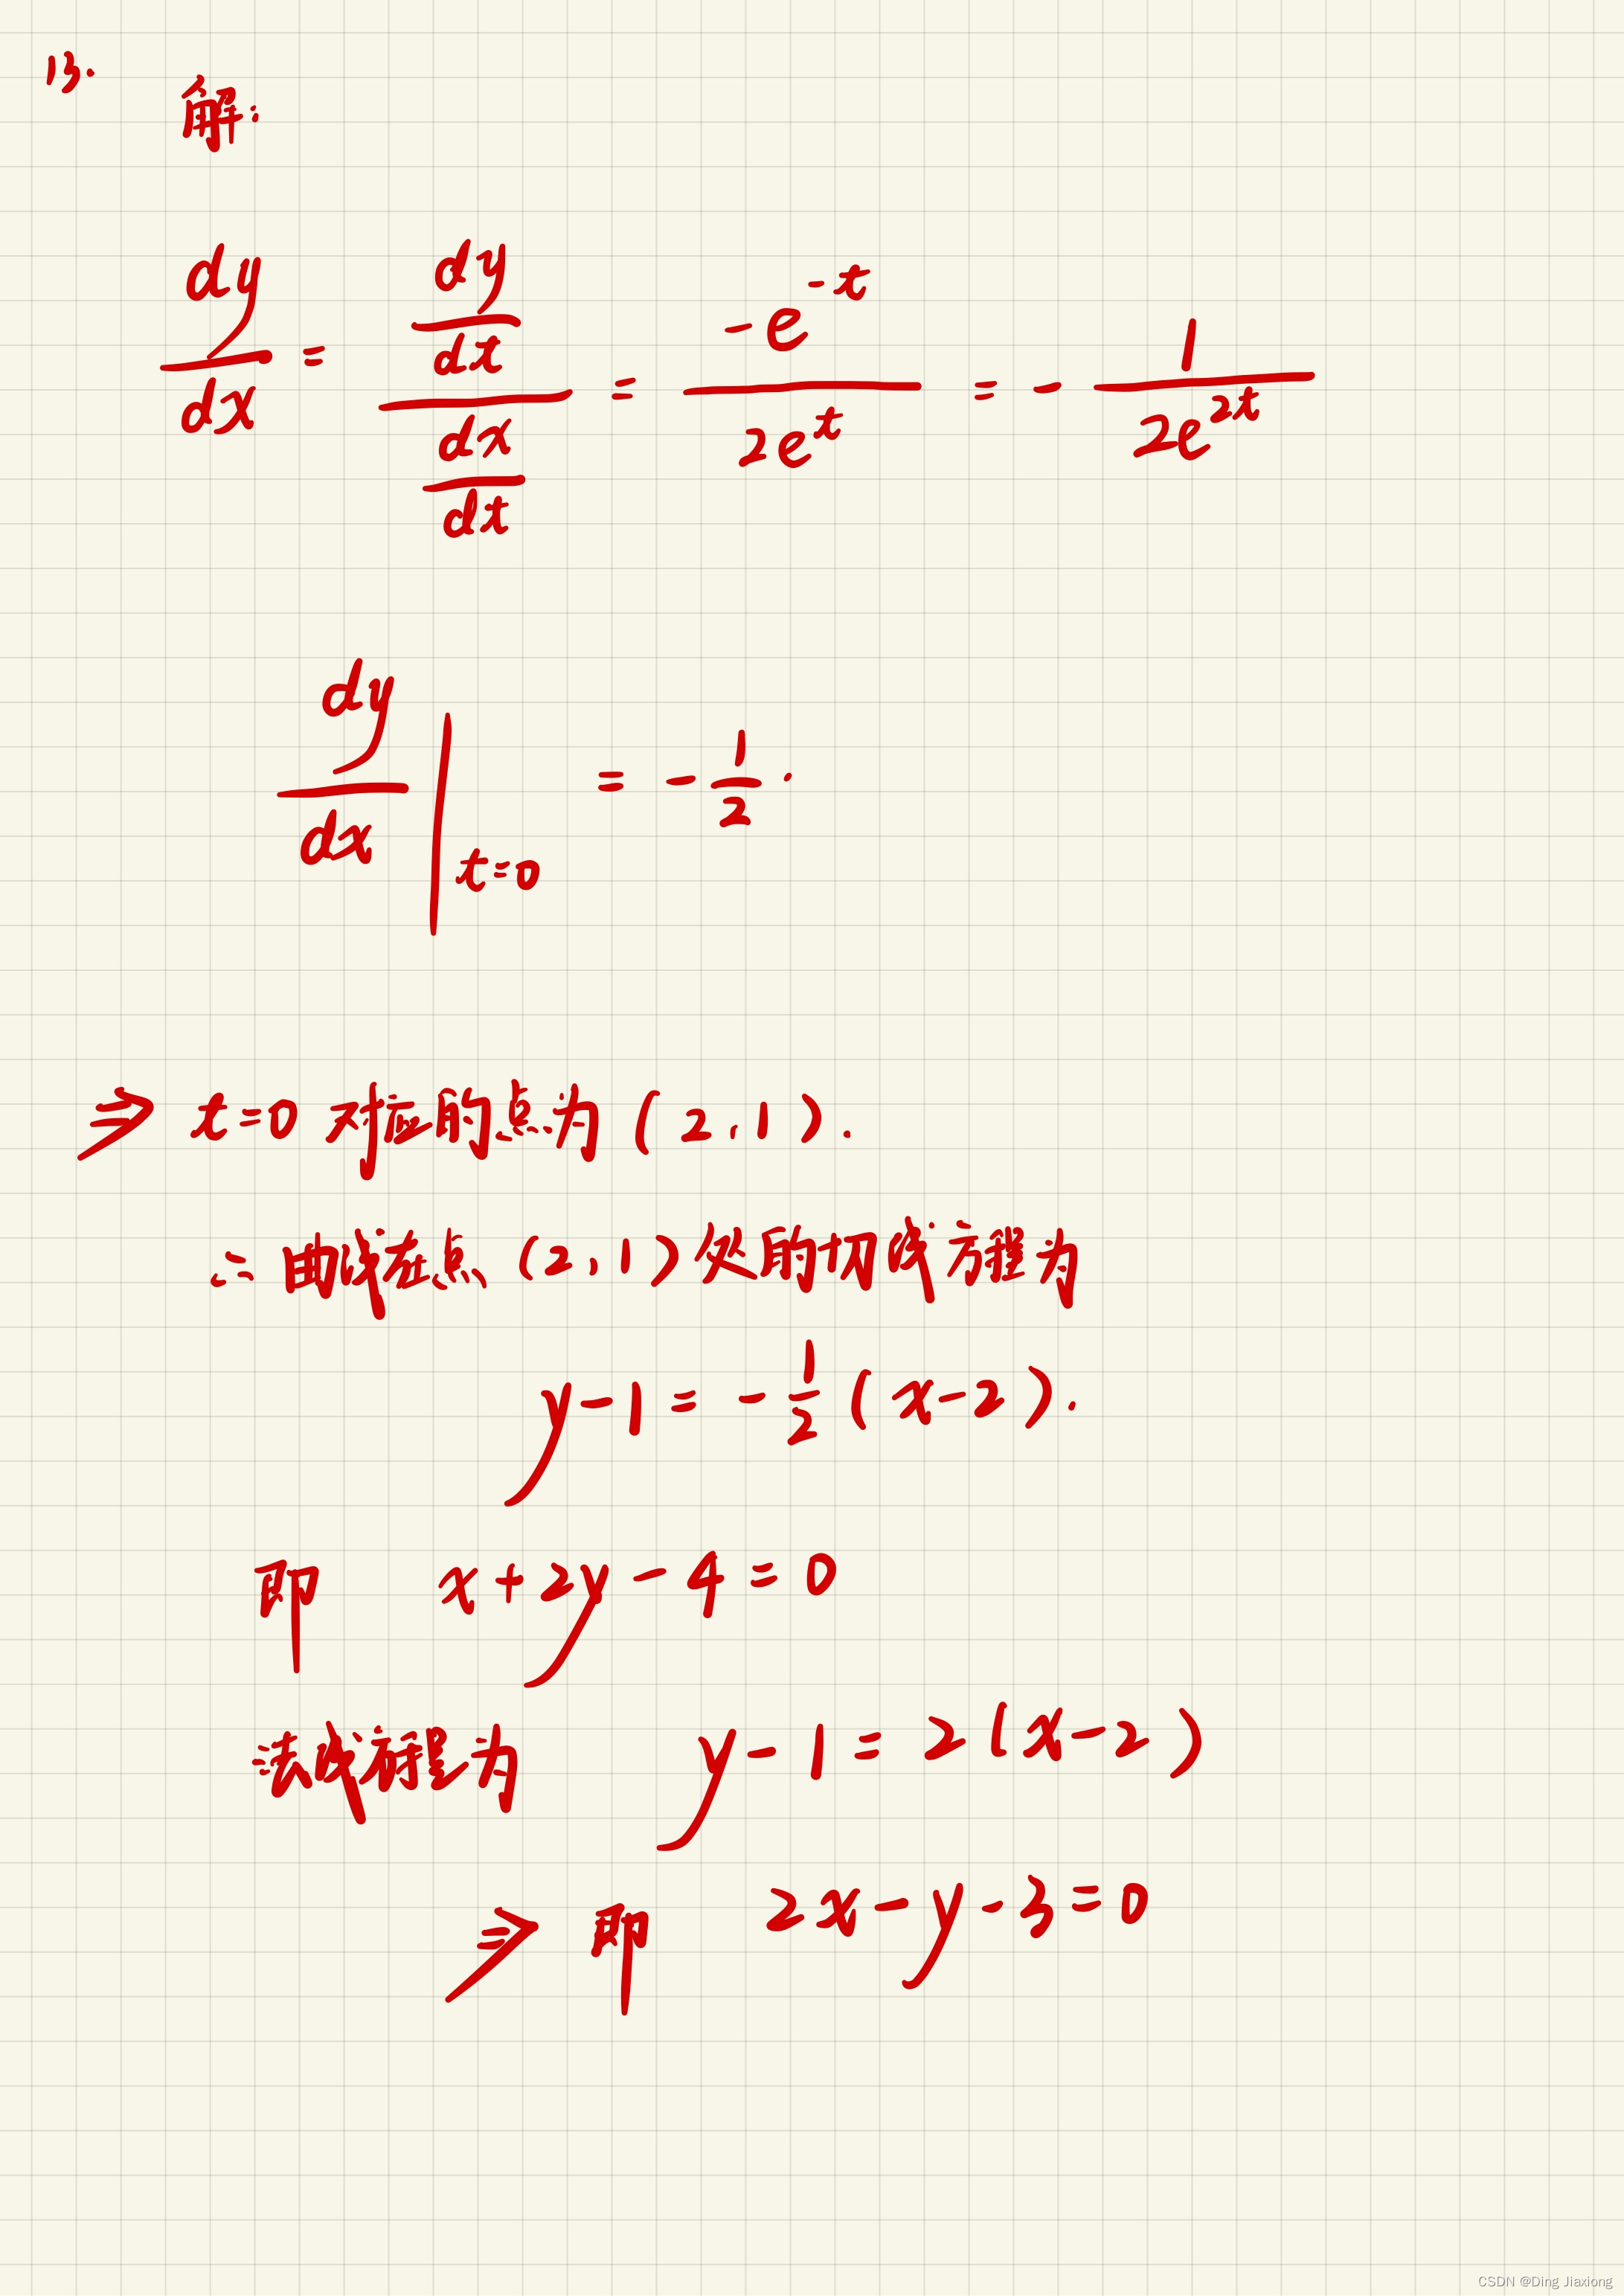 13.
解:
dy/dx = (dy/dx)/(dx/dt) = -e^{-t}/2e^{t} = - 1/2e^{2t}
dy/dx |_{t=0} = - 1/2 .
⇒ t=0 对应的点为 (2,1).
∴ 曲线在点 (2,1) 处的切线方程为
y-1 = - 1/2 (x-2).
即 x+2y-4=0
法线方程为 y-1=2(x-2)
⇒ 即 2x-y-3=0
CSDN @Ding Jiaxiong